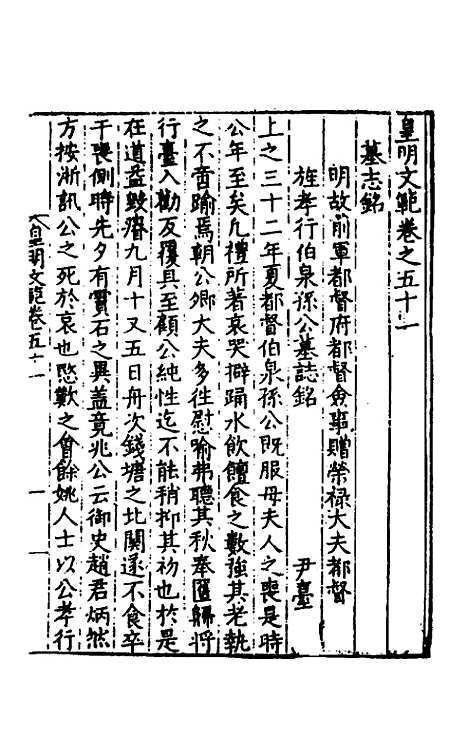 皇明文範卷之五十一
墓志銘
明故前軍都督府都督僉事贈榮祿大夫都督
旌孝行伯泉孫公墓誌銘 尹臺
上之三十二年夏都督伯泉孫公既服母夫人之喪是時
公年至矣凡禮所著哀哭擗踊水飲饘食之數強其老執
之不啻踰焉朝公卿大夫多往慰喻弗聽其秋奉匶歸將
行臺入勸反覆具至顧公純性迄不能稍抑其初也於是
在道益毀瘠九月十又五日舟次錢塘之北關遂不食卒
于喪側聯先夕有賈石之異蓋竟兆公云御史趙君炳然
方按淅訊公之死於哀也愍歎之會餘姚人士以公孝行
皇明文範卷五十一
一